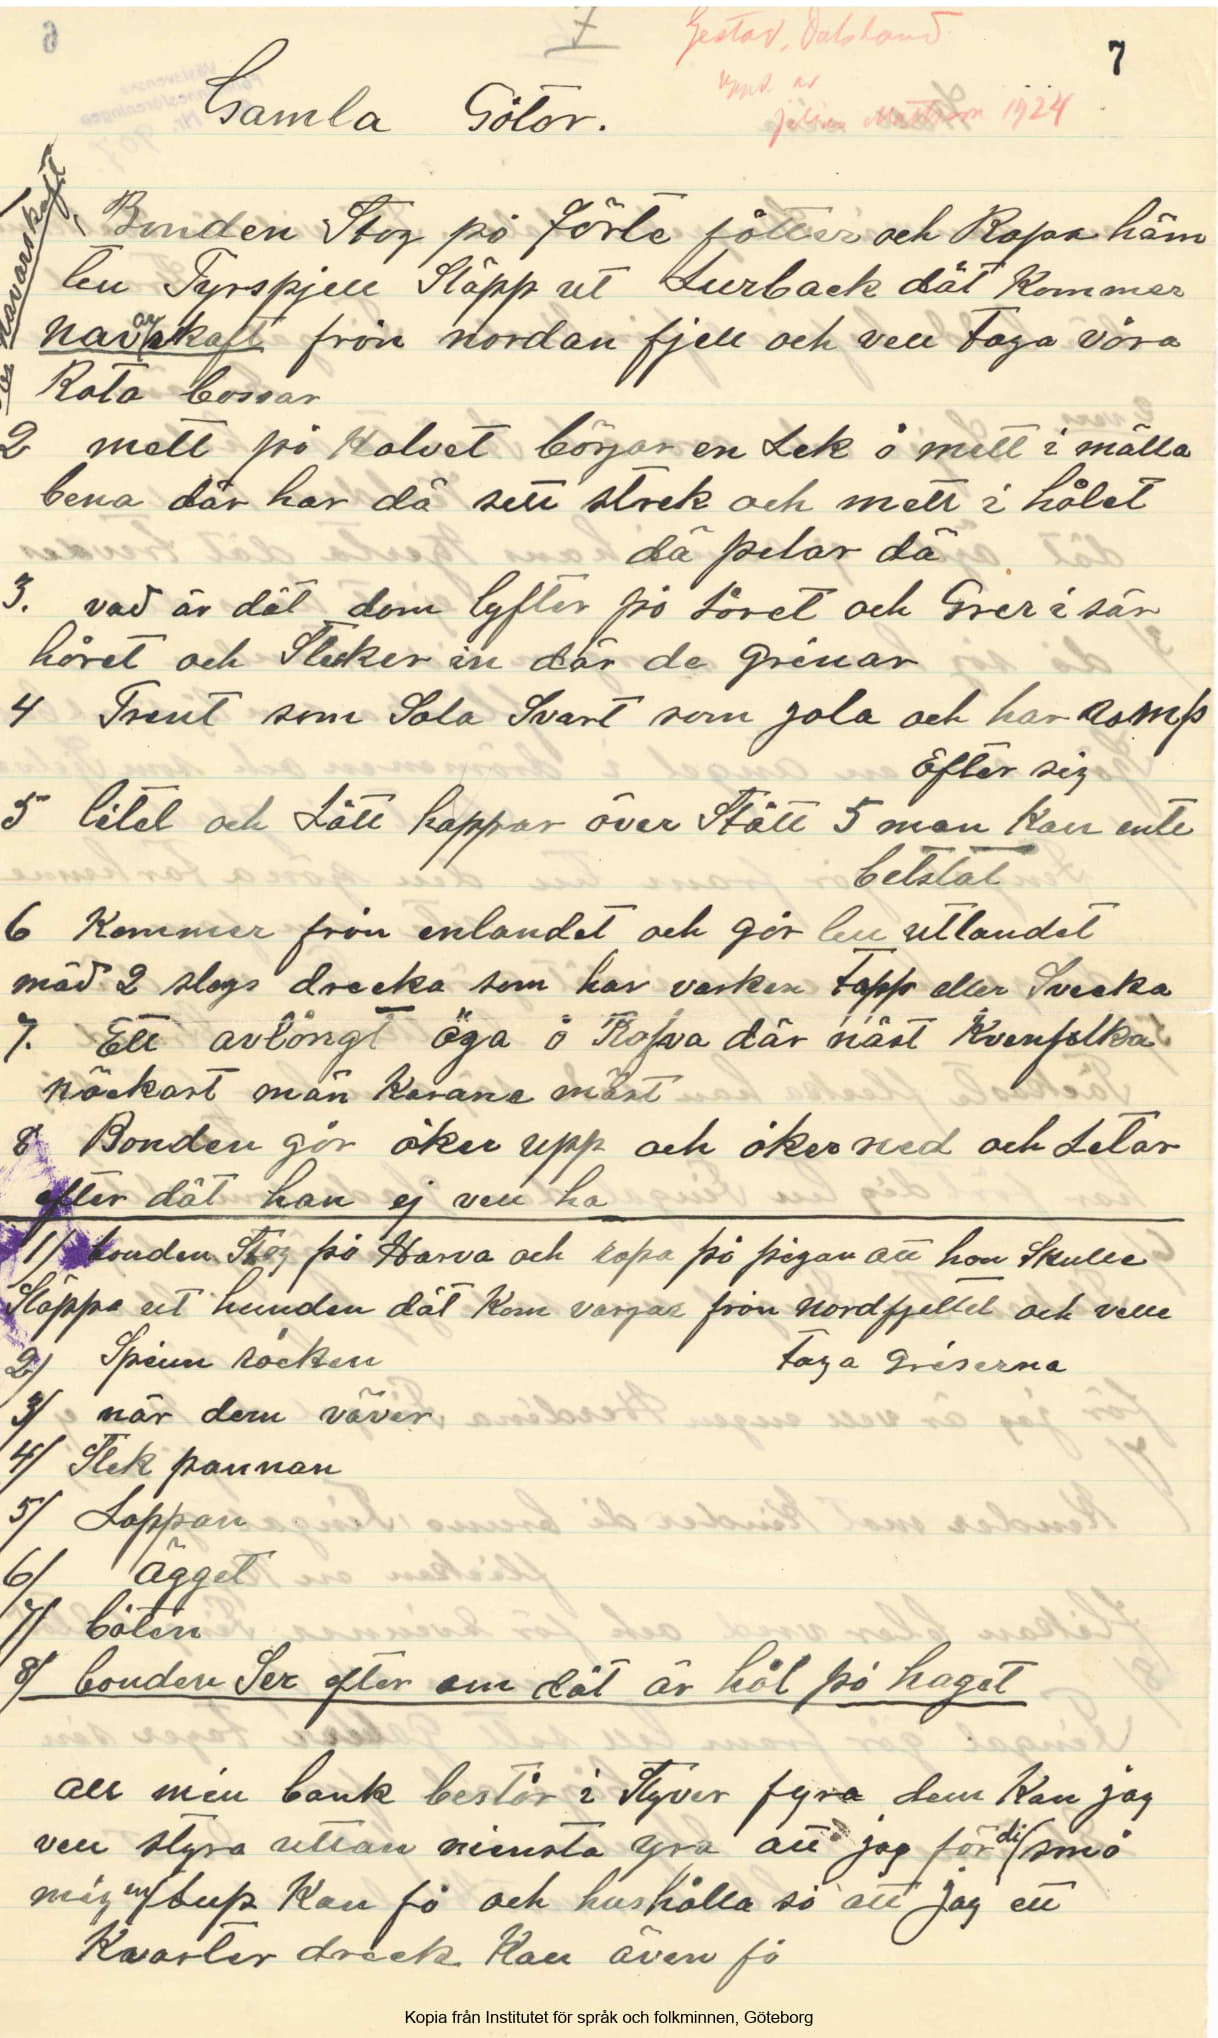 7
Gestad, Dalsland
1924
Gamla Gåtor.
1 Bonden Stog på Förte fötter och Ropa häm
len Tyrspjell Släpp ut Lurback dät Kommer
navarskaft från nordan fjell och vell Taga våra
Rota bossar
2 mett på Halvet börjar en Lek å mett i mälla
bena där har dä sett strek och mett i hålet
dä pelar dä
3. vad är dät dom lyfter på Låret och Grer i sär
håret och Steker in där de grenar
4 Trent som Sola Svart som jola och har romp
efter sig
5 litel och Lått happar över Stått 5 man Kan ente
betstat
6 Kommer från enlandet och går len utlandet
mäd 2 slags drecka som har varken Tapp eller Svecka
7. Ett avlångt öga å Ropva där näst Kvenfolka
nöckast män Karane mäst
8 Bonden går åker upp och åker ned och Letar
efter dät han ej vell ha
1) bonden Stog på Harva och ropa på pigan att hon Skulle
Släppa ut hunden dät Kom vargar från nordfjellet och velle
2) Spinn råcken Taga Griserna
3) när dem väver
4) Stek pannan
5) Loppan
6) ägget
7) båten
8) bonden Ser efter om dät är hål på haget
all min bank består i Styver fyra dem Kan jag
vell styra uttan minsta yra att jag för di små
mig en sup Kan få och hushålla så att jag ett
Kvarter dreck Kan även få
Kopia från Institutet för språk och folkminnen, Göteborg